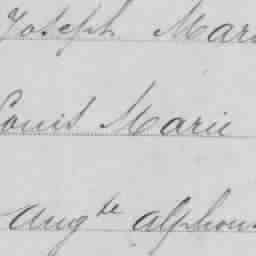 Joseph Mari
Louis Marie
Aug te alphons